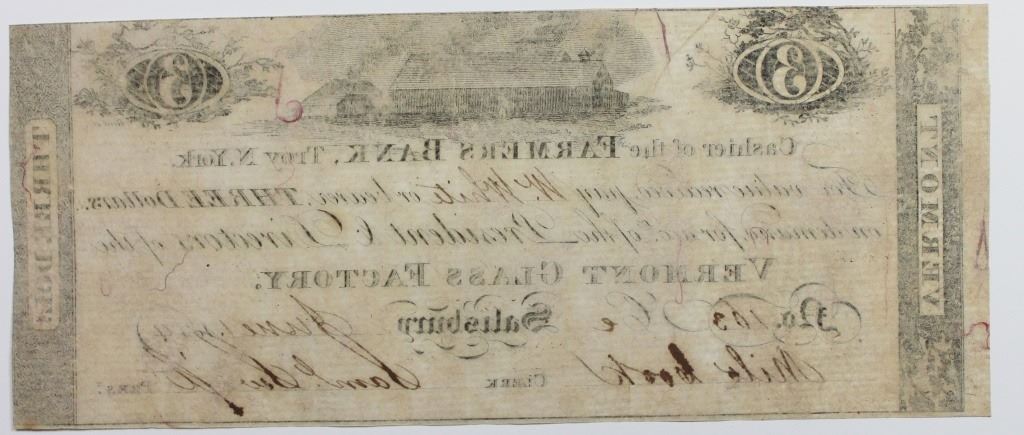 3 3
Cashier of the FARMERS BANK, Troy N. York.
For value received pay W. White or bearer THREE Dollars,
on demand, for acct. of the President & Directors of the
VERMONT GLASS FACTORY.
No. 103 Salisbury June 1814
Clerk Saml. Pres.
VERMONT
THREE DOLS